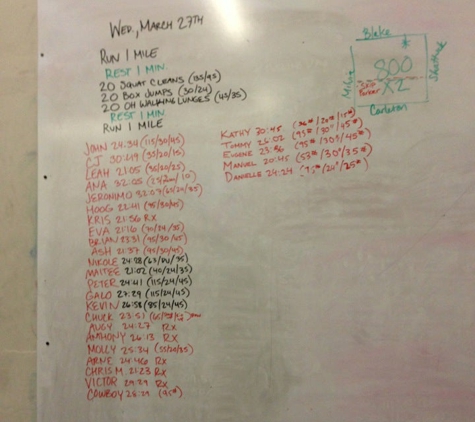 Wed, March 27th
Run 1 mile
Rest 1 min.
20 Squat cleans (135/95)
20 Box Jumps (30/24)
20 OH Walking Lunges (45/35)
Rest 1 min.
Run 1 mile
John 24:34 (115/30/45)
CJ 30:49 (55/20/15)
Leah 21:05 (35/20/25)
Ana 32:05
Jeronimo 32:07 (65/20/35)
Moog 22:41 (95/30/45)
Kris 21:56 Rx
Eva 21:16 (70/24/35)
Brian 23:31 (95/30/45)
Ash 21:37 (95/30/45)
Nikole 24:28
Maitee 21:02 (40/24/35)
Peter 24:41 (115/24/45)
Galo 27:29 (115/24/45)
Kevin 26:58 (85/24/45)
Chuck 23:51
Augy 24:27 Rx
Anthony 26:13 Rx
Molly 25:34 (55/20/35)
Arne 24:46 Rx
Chris M. 21:23 Rx
Victor 29:29 Rx
Cowboy (95#)
Kathy 30:48
Tommy 25:02 (95#/30"/45#)
Eugene 23:36 (95#/30"/45#)
Manuel 20:45
Danielle 24:24
Blake
Milvia
800
x2
Shattuck
Carleton